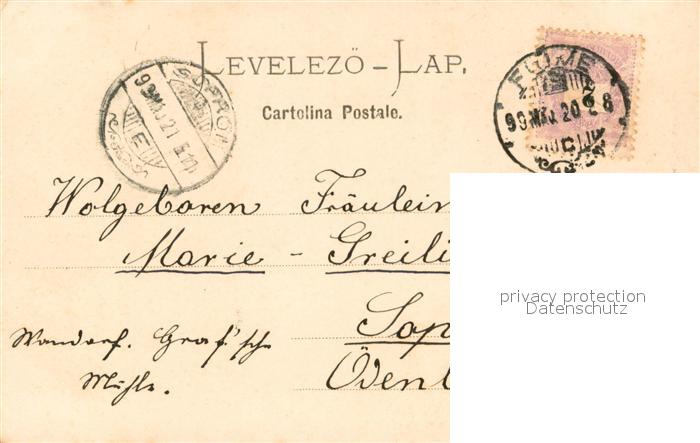 LEVELEZŐ-LAP.
Cartolina Postale.
SOPRON
99 MÁJ 21
E
FIUME
99 MÁJ 20
C
Wolgeboren Fräulein
Marie - Greili
Sop
Ödenb
Wandorf. Graf'sche
Mühle.
privacy protection
Datenschutz